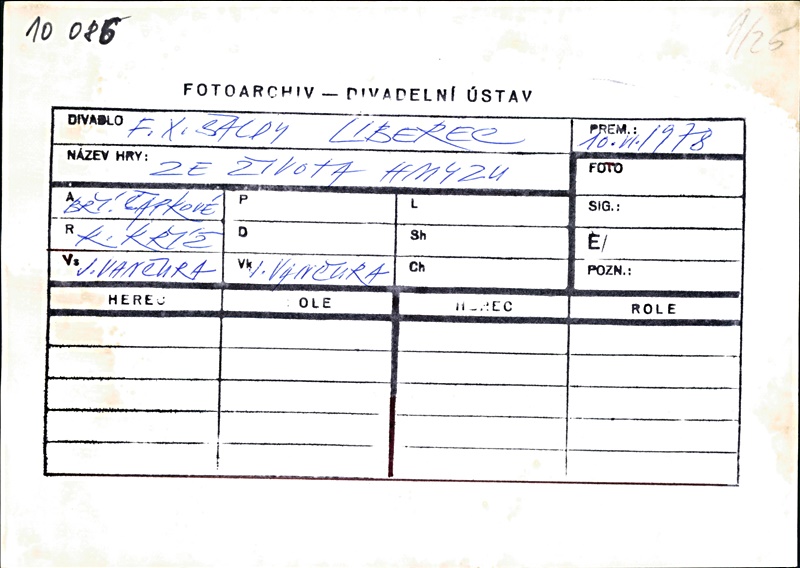 10 086
9/25
FOTOARCHIV — DIVADELNÍ ÚSTAV
DIVADLO F. X. ŠALDY LIBEREC
PREM.: 10. VI. 1978
NÁZEV HRY: ZE ŽIVOTA HMYZU
FOTO
A BRÍ. ČAPKOVÉ P L
SIG.:
R K. KŘÍŽ D Sh
Č/
Vs J. VANČURA Vk J. VANČURA Ch
POZN.:
HEREC ROLE HEREC ROLE